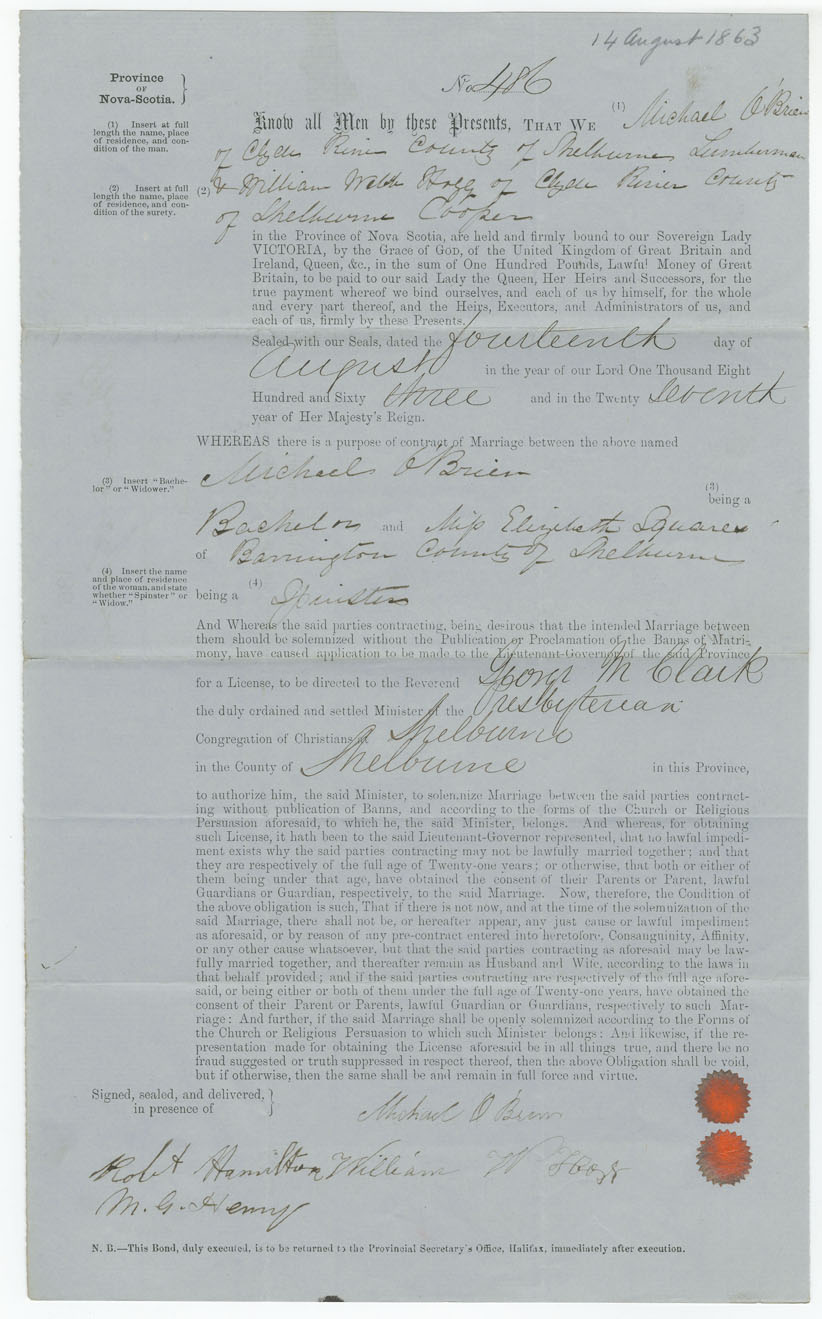 14 August 1863
Province
OF
Nova-Scotia.
No 486
(1) Insert at full
length the name, place
of residence, and con-
dition of the man.
Know all Men by these Presents, THAT WE (1) Michael O'Brien
of Clyde River County of Shelburne Lumberman
(2) Insert at full
length the name, place
of residence, and con-
dition of the surety.
(2) & William Webb Hogg of Clyde River County
of Shelburne Cooper
in the Province of Nova Scotia, are held and firmly bound to our Sovereign Lady
VICTORIA, by the Grace of GOD, of the United Kingdom of Great Britain and
Ireland, Queen, &c., in the sum of One Hundred Pounds, Lawful Money of Great
Britain, to be paid to our said Lady the Queen, Her Heirs and Successors, for the
true payment whereof we bind ourselves, and each of us by himself, for the whole
and every part thereof, and the Heirs, Executors, and Administrators of us, and
each of us, firmly by these Presents.
Sealed with our Seals, dated the fourteenth day of
August in the year of our Lord One Thousand Eight
Hundred and Sixty three and in the Twenty Seventh
year of Her Majesty's Reign.
WHEREAS there is a purpose of contract of Marriage between the above named
Michael O'Brien
(3) Insert "Bache-
lor" or "Widower."
(3)
being a
Bachelor and Miss Elizabeth Squares
of Barrington County of Shelburne
(4) Insert the name
and place of residence
of the woman, and state
whether "Spinster" or
"Widow."
being a (4) Spinster
And Whereas the said parties contracting, being desirous that the intended Marriage between
them should be solemnized without the Publication or Proclamation of the Banns of Matri-
mony, have caused application to be made to the Lieutenant-Governor of the said Province
for a License, to be directed to the Reverend George M Clark
the duly ordained and settled Minister of the Presbyterian
Congregation of Christians at Shelburne
in the County of Shelburne in this Province,
to authorize him, the said Minister, to solemnize Marriage between the said parties contract-
ing without publication of Banns, and according to the forms of the Church or Religious
Persuasion aforesaid, to which he, the said Minister, belongs. And whereas, for obtaining
such License, it hath been to the said Lieutenant-Governor represented, that no lawful impedi-
ment exists why the said parties contracting may not be lawfully married together; and that
they are respectively of the full age of Twenty-one years; or otherwise, that both or either of
them being under that age, have obtained the consent of their Parents or Parent, lawful
Guardians or Guardian, respectively, to the said Marriage. Now, therefore, the Condition of
the above obligation is such, That if there is not now, and at the time of the solemnization of the
said Marriage, there shall not be, or hereafter appear, any just cause or lawful impediment
as aforesaid, or by reason of any pre-contract entered into heretofore, Consanguinity, Affinity,
or any other cause whatsoever, but that the said parties contracting as aforesaid may be law-
fully married together, and thereafter remain as Husband and Wife, according to the laws in
that behalf provided; and if the said parties contracting are respectively of the full age afore-
said, or being either or both of them under the full age of Twenty-one years, have obtained the
consent of their Parent or Parents, lawful Guardian or Guardians, respectively to such Mar-
riage: And further, if the said Marriage shall be openly solemnized according to the Forms of
the Church or Religious Persuasion to which such Minister belongs: And likewise, if the re-
presentation made for obtaining the License aforesaid be in all things true, and there be no
fraud suggested or truth suppressed in respect thereof, then the above Obligation shall be void,
but if otherwise, then the same shall be and remain in full force and virtue.
Signed, sealed, and delivered,
in presence of
Michael O'Brien
Robt Hamilton William W Hogg
M. G. Henry
N. B.—This Bond, duly executed, is to be returned to the Provincial Secretary's Office, Halifax, immediately after execution.